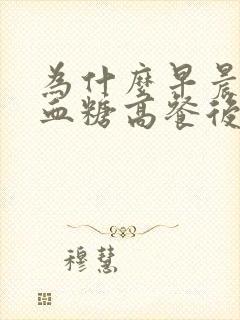 為什麼早晨
血糖高餐後
穆慧